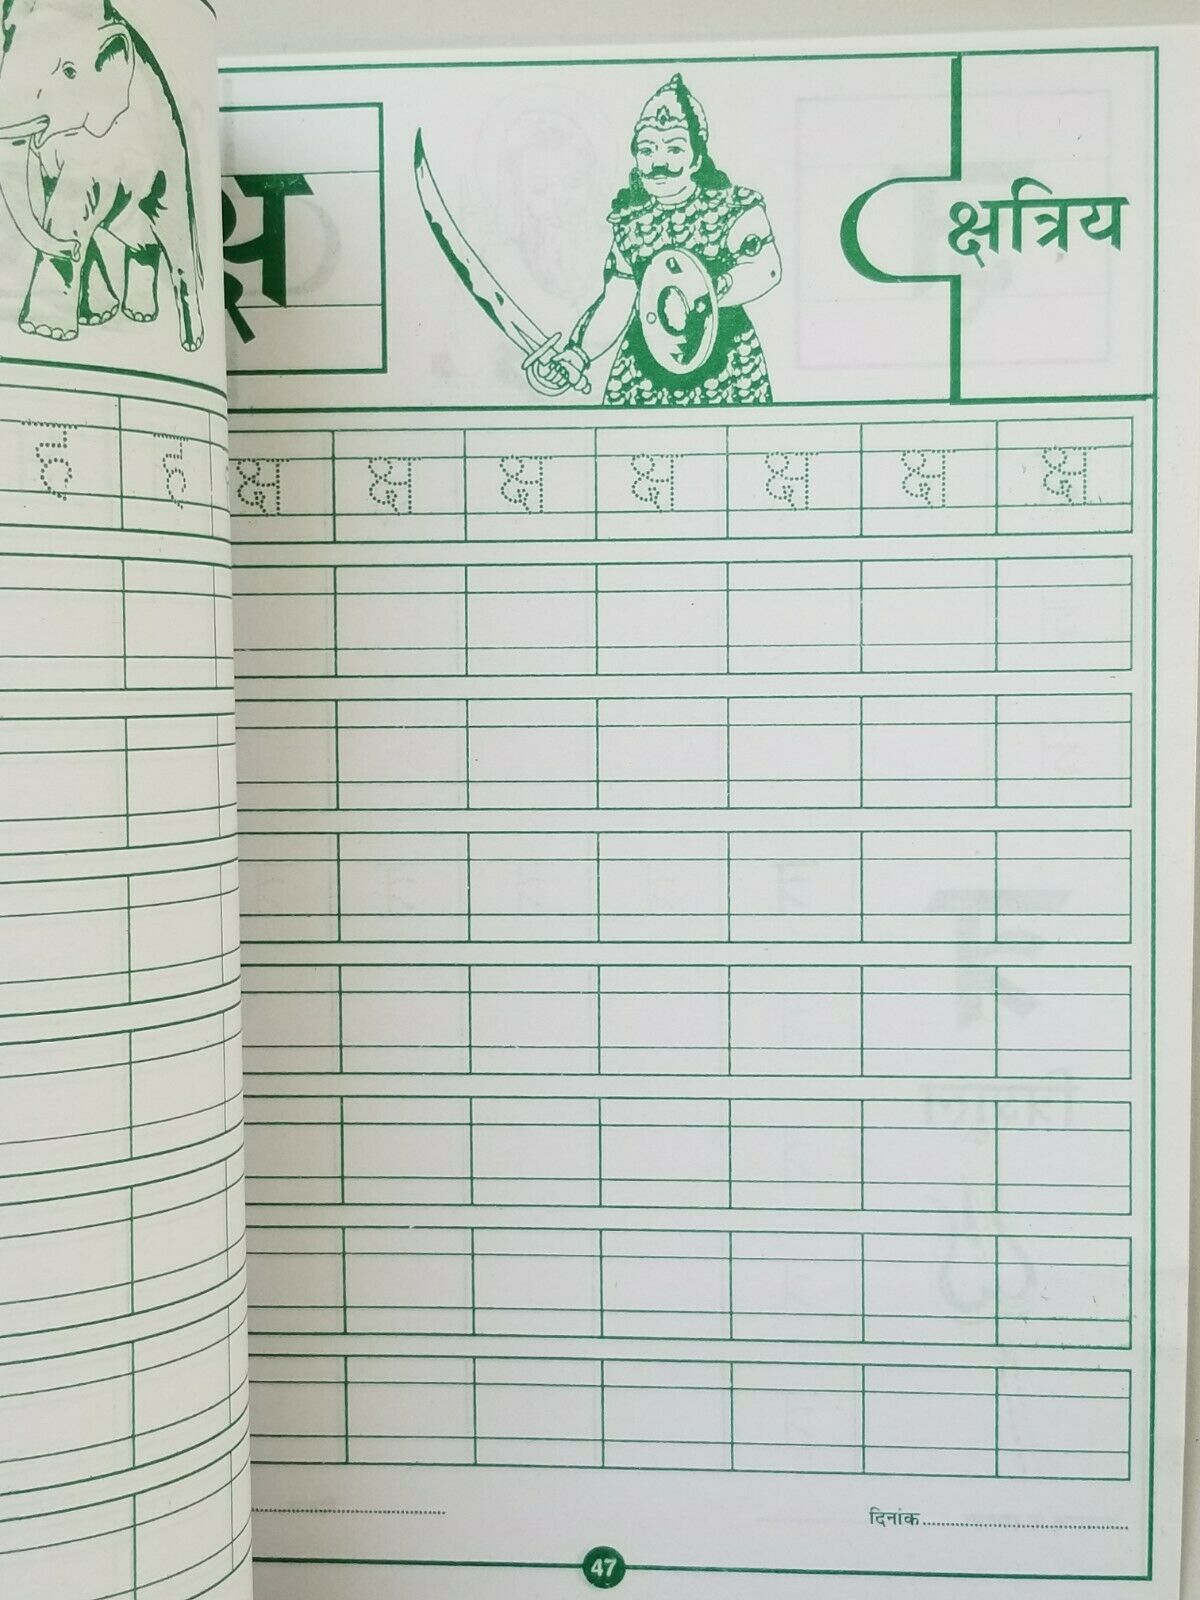 क्ष
क्षत्रिय
ह ह
क्ष क्ष क्ष क्ष क्ष क्ष क्ष
दिनांक
47